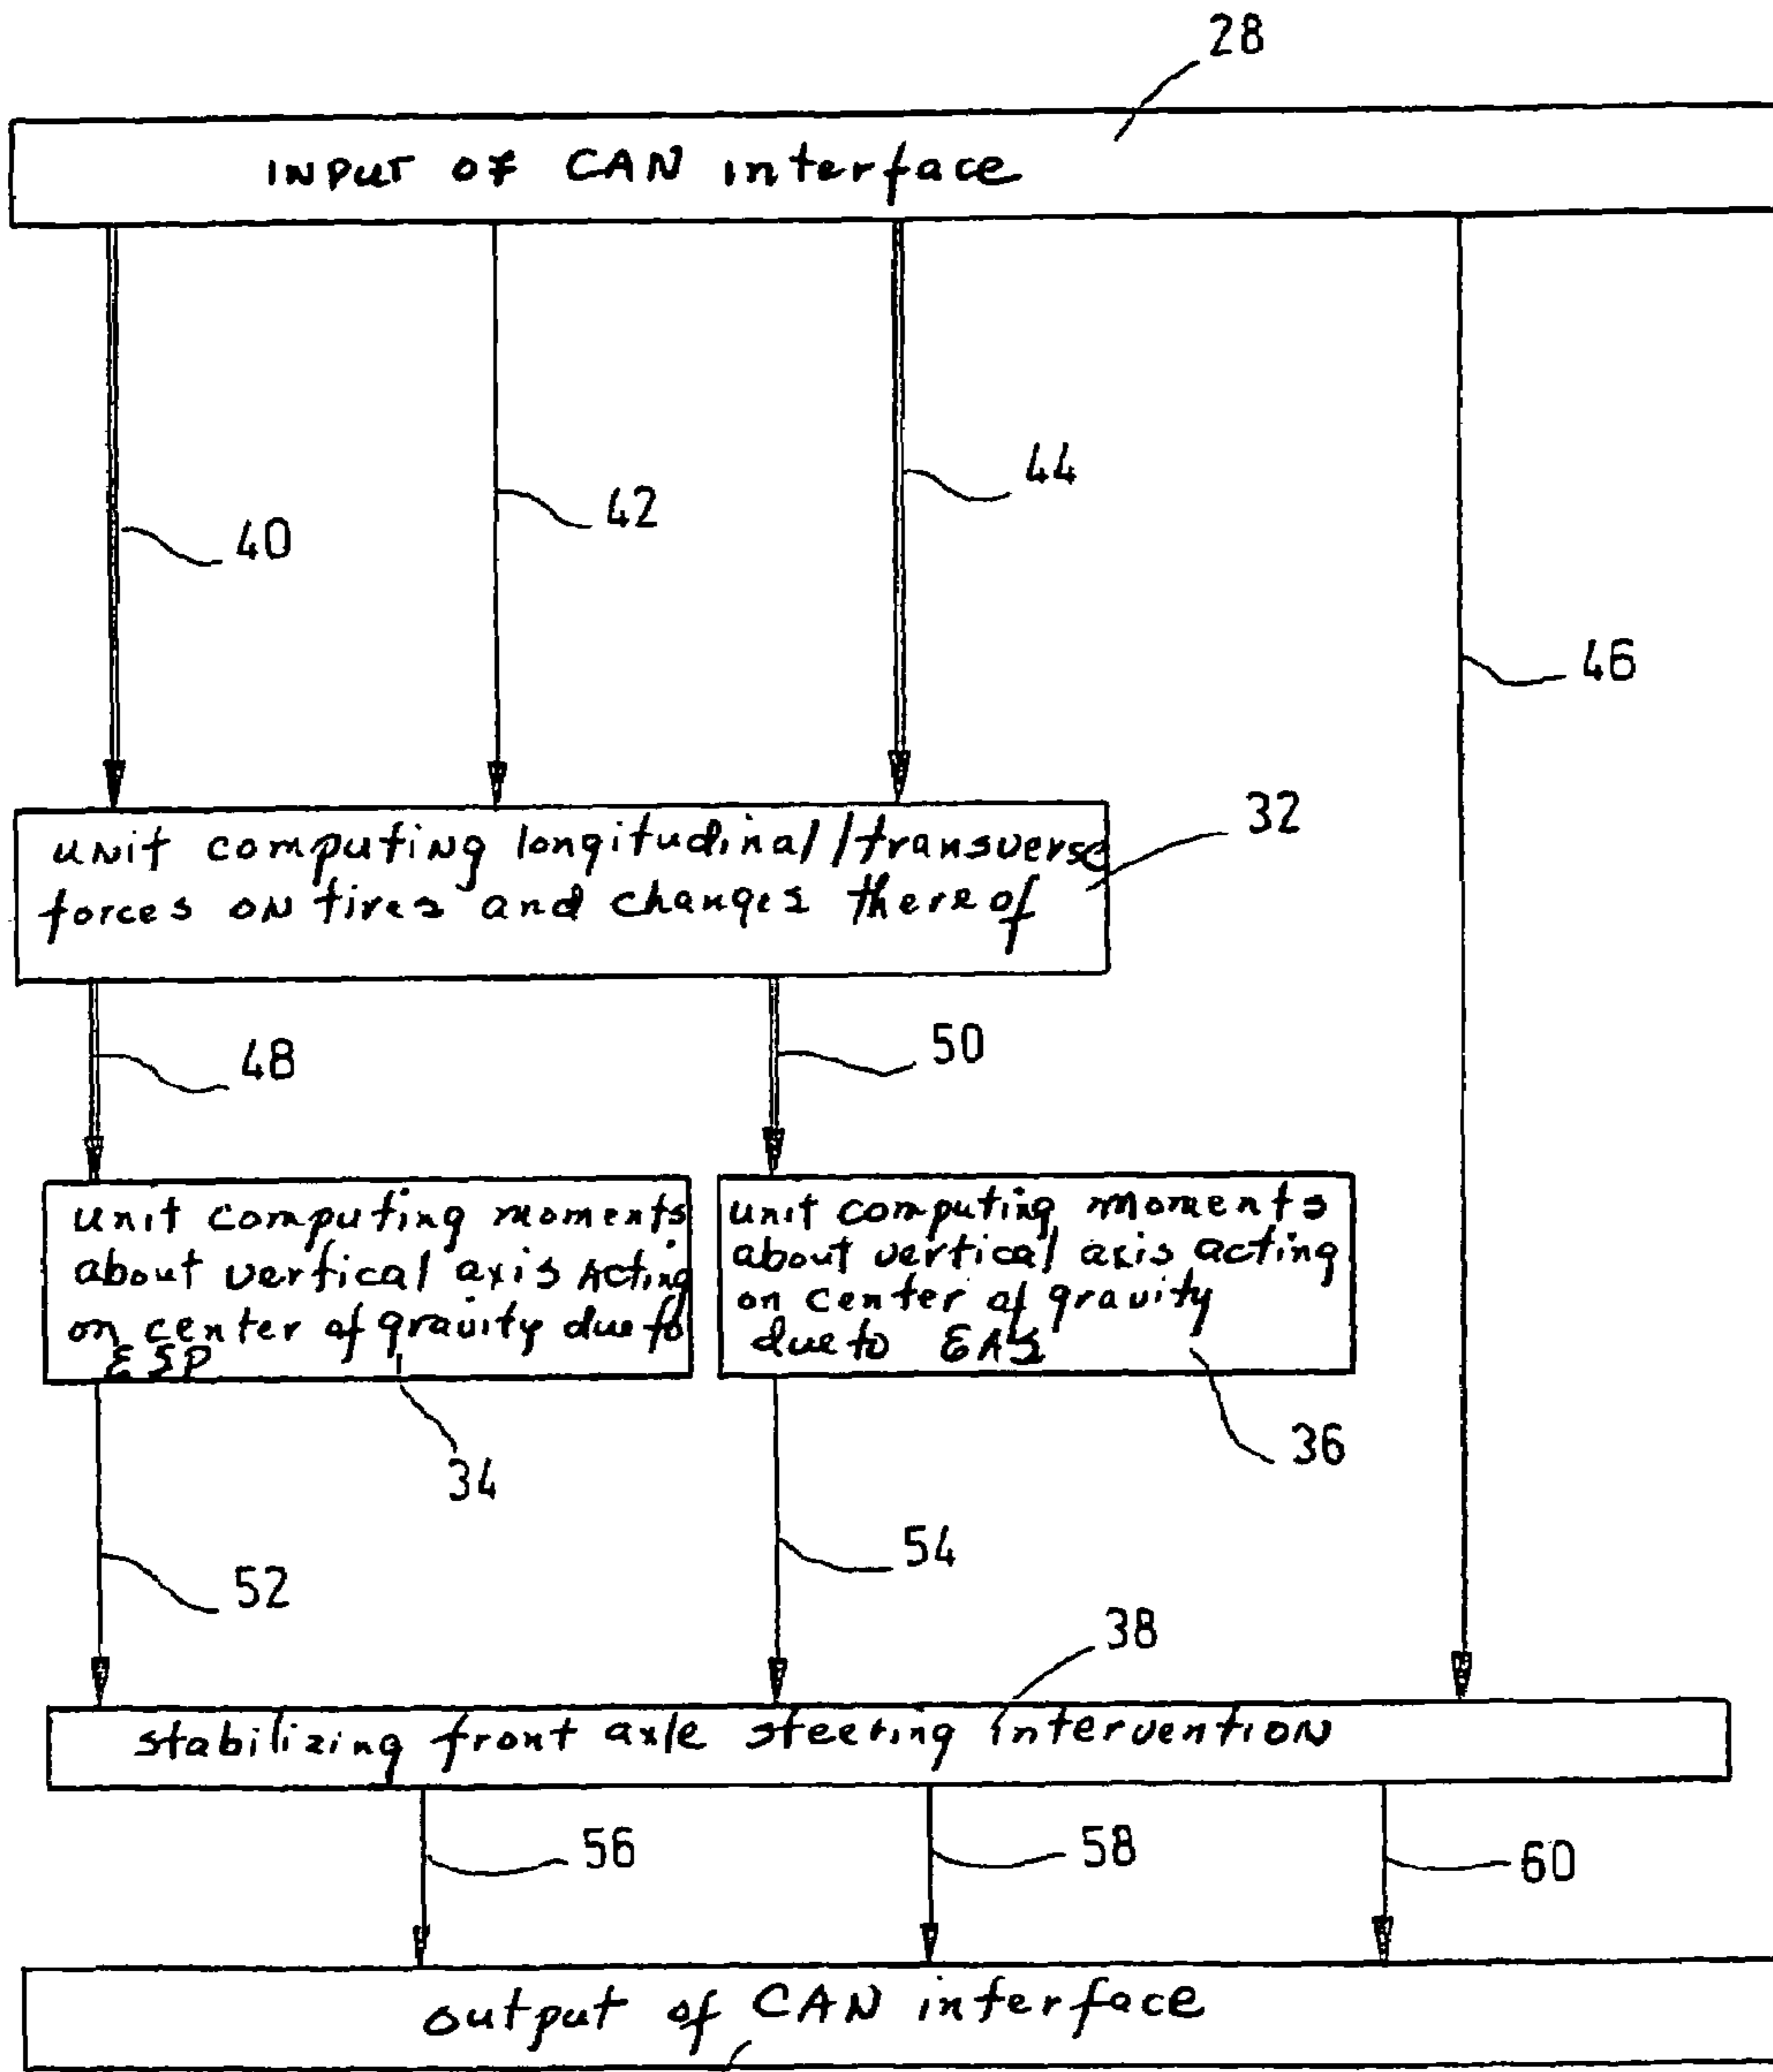 28
INPUT OF CAN interface
44
42
40
46
32
unit computing longitudinal/transverse
forces on tires and changes thereof
50
48
unit computing moments
about vertical axis acting
on center of gravity due to
ESP
unit computing moments
about vertical axis acting
on center of gravity
due to EAS
36
34
54
52
38
stabilizing front axle steering intervention
56
58
60
output of CAN interface